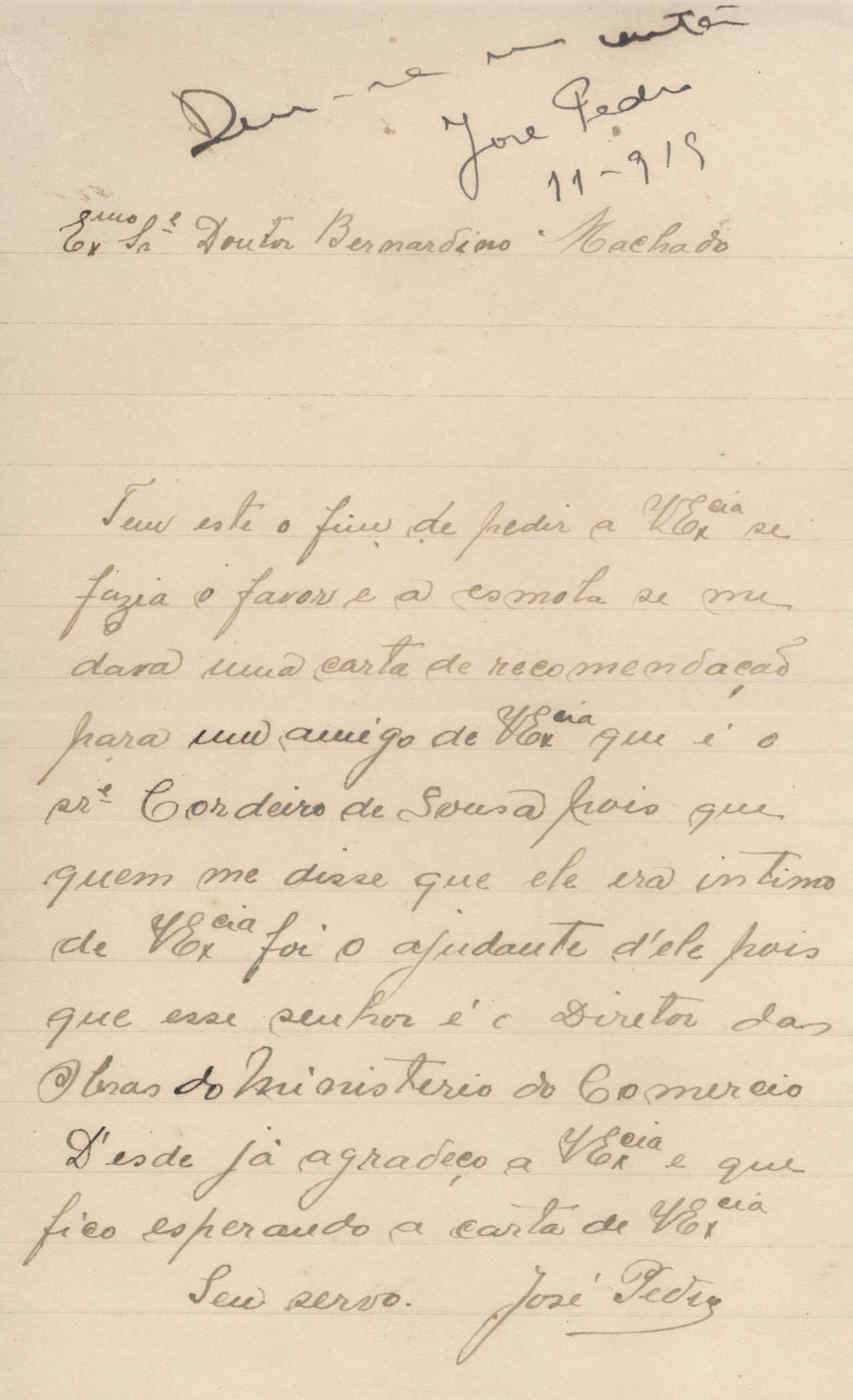 Deu-se um cartão
José Pedro
11-919
Exmo Snr Doutor Bernardino Machado
Tem este o fim de pedir a VExcia se
fazia o favor e a esmola se me
dava uma carta de recomendação
para um amigo de VExcia que é o
snr Cordeiro de Sousa pois que
quem me disse que ele era intimo
de VExcia foi o ajudante d'ele pois
que esse senhor é o Diretor das
Obras do Ministerio do Comercio
D'esde já agradeço a VExcia e que
fico esperando a carta de VExcia
Seu servo. José Pedro